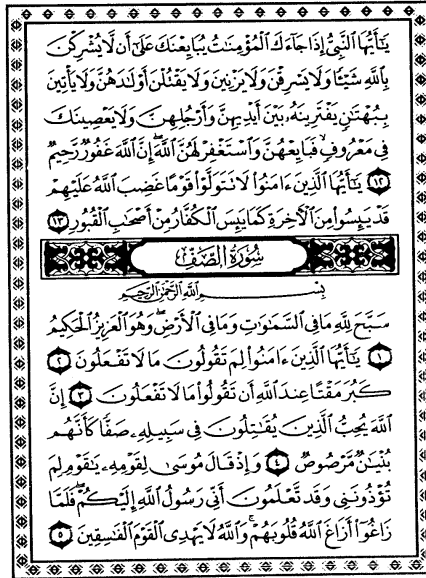 يَٰٓأَيُّهَا ٱلنَّبِيُّ إِذَا جَآءَكَ ٱلْمُؤْمِنَٰتُ يُبَايِعْنَكَ عَلَىٰٓ أَن لَّا يُشْرِكْنَ
بِٱللَّهِ شَيْـًٔا وَلَا يَسْرِقْنَ وَلَا يَزْنِينَ وَلَا يَقْتُلْنَ أَوْلَٰدَهُنَّ وَلَا يَأْتِينَ
بِبُهْتَٰنٍ يَفْتَرِينَهُۥ بَيْنَ أَيْدِيهِنَّ وَأَرْجُلِهِنَّ وَلَا يَعْصِينَكَ
فِى مَعْرُوفٍ فَبَايِعْهُنَّ وَٱسْتَغْفِرْ لَهُنَّ ٱللَّهَ إِنَّ ٱللَّهَ غَفُورٌ رَّحِيمٌ
١٢ يَٰٓأَيُّهَا ٱلَّذِينَ ءَامَنُوا۟ لَا تَتَوَلَّوْا۟ قَوْمًا غَضِبَ ٱللَّهُ عَلَيْهِمْ
قَدْ يَئِسُوا۟ مِنَ ٱلْءَاخِرَةِ كَمَا يَئِسَ ٱلْكُفَّارُ مِنْ أَصْحَٰبِ ٱلْقُبُورِ ١٣
سُورَةُ الصَّفِّ
بِسْمِ ٱللَّهِ ٱلرَّحْمَٰنِ ٱلرَّحِيمِ
سَبَّحَ لِلَّهِ مَا فِى ٱلسَّمَٰوَٰتِ وَمَا فِى ٱلْأَرْضِ وَهُوَ ٱلْعَزِيزُ ٱلْحَكِيمُ
١ يَٰٓأَيُّهَا ٱلَّذِينَ ءَامَنُوا۟ لِمَ تَقُولُونَ مَا لَا تَفْعَلُونَ ٢
كَبُرَ مَقْتًا عِندَ ٱللَّهِ أَن تَقُولُوا۟ مَا لَا تَفْعَلُونَ ٣ إِنَّ
ٱللَّهَ يُحِبُّ ٱلَّذِينَ يُقَٰتِلُونَ فِى سَبِيلِهِۦ صَفًّا كَأَنَّهُم
بُنْيَٰنٌ مَّرْصُوصٌ ٤ وَإِذْ قَالَ مُوسَىٰ لِقَوْمِهِۦ يَٰقَوْمِ لِمَ
تُؤْذُونَنِى وَقَد تَّعْلَمُونَ أَنِّى رَسُولُ ٱللَّهِ إِلَيْكُمْ فَلَمَّا
زَاغُوٓا۟ أَزَاغَ ٱللَّهُ قُلُوبَهُمْ وَٱللَّهُ لَا يَهْدِى ٱلْقَوْمَ ٱلْفَٰسِقِينَ ٥